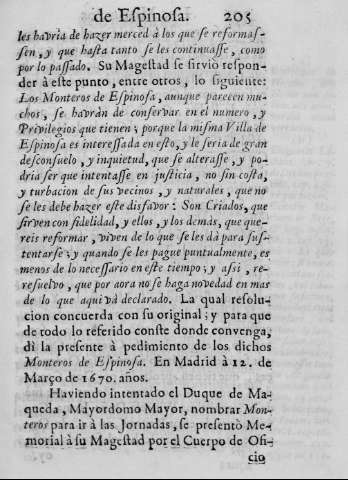 de Espinosa. 205
les havria de hazer merced à los que se reformas-
sen, y que hasta tanto se les continuasse, como
por lo passado. Su Magestad se sirviò respon-
der à este punto, entre otros, lo siguiente:
Los Monteros de Espinosa, aunque parecen mu-
chos, se havràn de conservar en el numero, y
Privilegios que tienen; porque la misma Villa de
Espinosa es interessada en esto, y le seria de gran
desconsuelo, y inquietud, que se alterasse, y po-
dria ser que intentasse en justicia, no sin costa,
y turbacion de sus vecinos, y naturales, que no
se les debe hazer este disfavor: Son Criados, que
sirven con fidelidad, y ellos, y los demàs, que que-
reis reformar, viven de lo que se les dà para sus-
tentarse; y quando se les pague puntualmente, es
menos de lo necessario en este tiempo; y assi, re-
resuelvo, que por aora no se haga novedad en mas
de lo que aqui và declarado. La qual resolu-
cion concuerda con su original; y para que
de todo lo referido conste donde convenga,
dì la presente à pedimento de los dichos
Monteros de Espinosa. En Madrid à 12. de
Março de 1670. años.
Haviendo intentado el Duque de Ma-
queda, Mayordomo Mayor, nombrar Mon-
teros para ir à las Jornadas, se presentò Me-
morial à su Magestad por el Cuerpo de Ofi-
cio